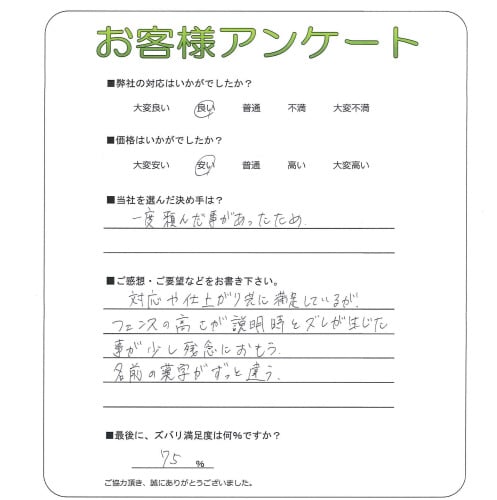 お客様アンケート
■弊社の対応はいかがでしたか？
大変良い 良い 普通 不満 大変不満
■価格はいかがでしたか？
大変安い 安い 普通 高い 大変高い
■当社を選んだ決め手は？
一度頼んだ事があったため.
■ご感想・ご要望などをお書き下さい。
対応や仕上がり共に満足しているが、
フェンスの高さが説明時とズレが生じた
事が少し残念におもう.
名前の漢字がずっと違う.
■最後に、ズバリ満足度は何%ですか？
75 %
ご協力頂き、誠にありがとうございました。